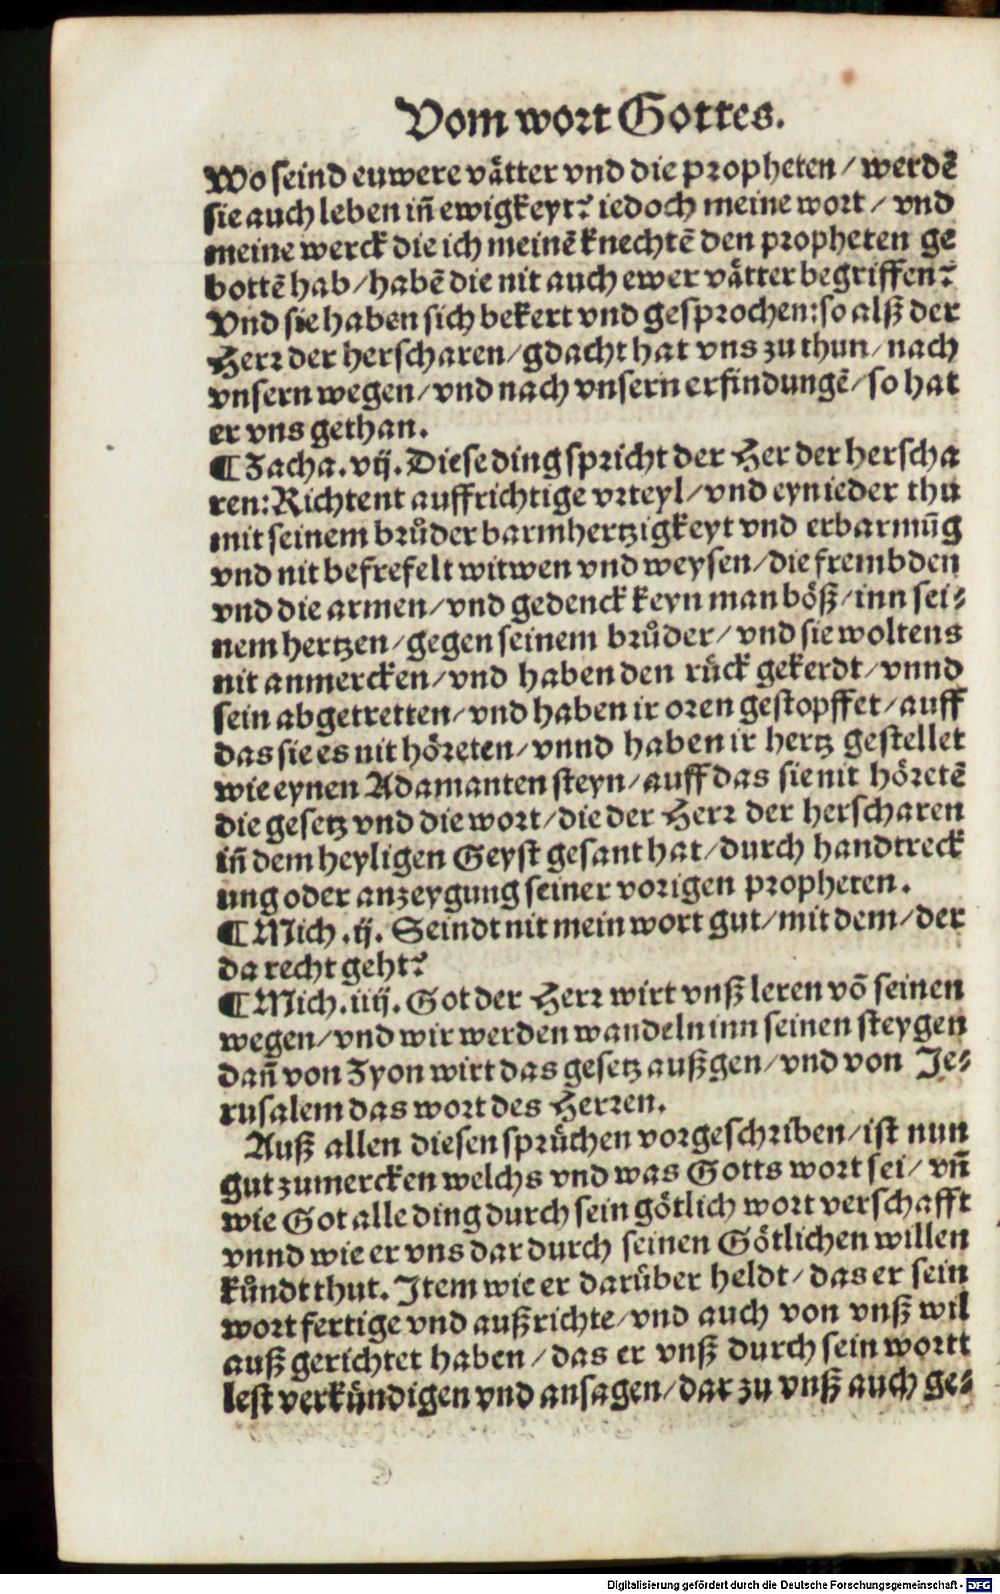 Vom wort Gottes.
Wo seind euwere vätter vnd die propheten / werdē
sie auch leben in̄ ewigkeyt? iedoch meine wort / vnd
meine werck die ich meinē knechtē den propheten ge
bottē hab / habē die nit auch ewer vätter begriffen?
Vnd sie haben sich bekert vnd gesprochen: so alß der
Herr der herscharen / gdacht hat vns zu thun / nach
vnsern wegen / vnd nach vnsern erfindungē / so hat
er vns gethan.
¶ Zacha. vij. Diese ding spricht der Her der herscha
ren: Richtent auffrichtige vrteyl / vnd eyn ieder thu
mit seinem brůder barmhertzigkeyt vnd erbarmūg
vnd nit befrefelt witwen vnd weysen / die frembden
vnd die armen / vnd gedenck keyn man böß / inn sei⸗
nem hertzen / gegen seinem brůder / vnd sie woltens
nit anmercken / vnd haben den rück gekerdt / vnnd
sein abgetretten / vnd haben ir oren gestopffet / auff
das sie es nit höreten / vnnd haben ir hertz gestellet
wie eynen Adamanten steyn / auff das sie nit höretē
die gesetz vnd die wort / die der Herr der herscharen
in̄ dem heyligen Geyst gesant hat / durch handtreck
ung oder anzeygung seiner vorigen propheten.
¶ Mich. ij. Seindt nit mein wort gut / mit dem / der
da recht geht?
¶ Mich. iiij. Got der Herr wirt vnß leren vō seinen
wegen / vnd wir werden wandeln inn seinen steygen
dan̄ von Zyon wirt das gesetz außgen / vnd von Je⸗
rusalem das wort des Herren.
Auß allen diesen sprüchen vorgeschriben / ist nun
gut zumercken welchs vnd was Gotts wort sei / vn̄
wie Got alle ding durch sein götlich wort verschafft
vnnd wie er vns dar durch seinen Götlichen willen
kündt thut. Item wie er darüber heldt / das er sein
wort fertige vnd außrichte / vnd auch von vnß wil
auß gerichtet haben / das er vnß durch sein wortt
lest verkündigen vnd ansagen / dar zu vnß auch ge⸗
Digitalisierung gefördert durch die Deutsche Forschungsgemeinschaft - DFG